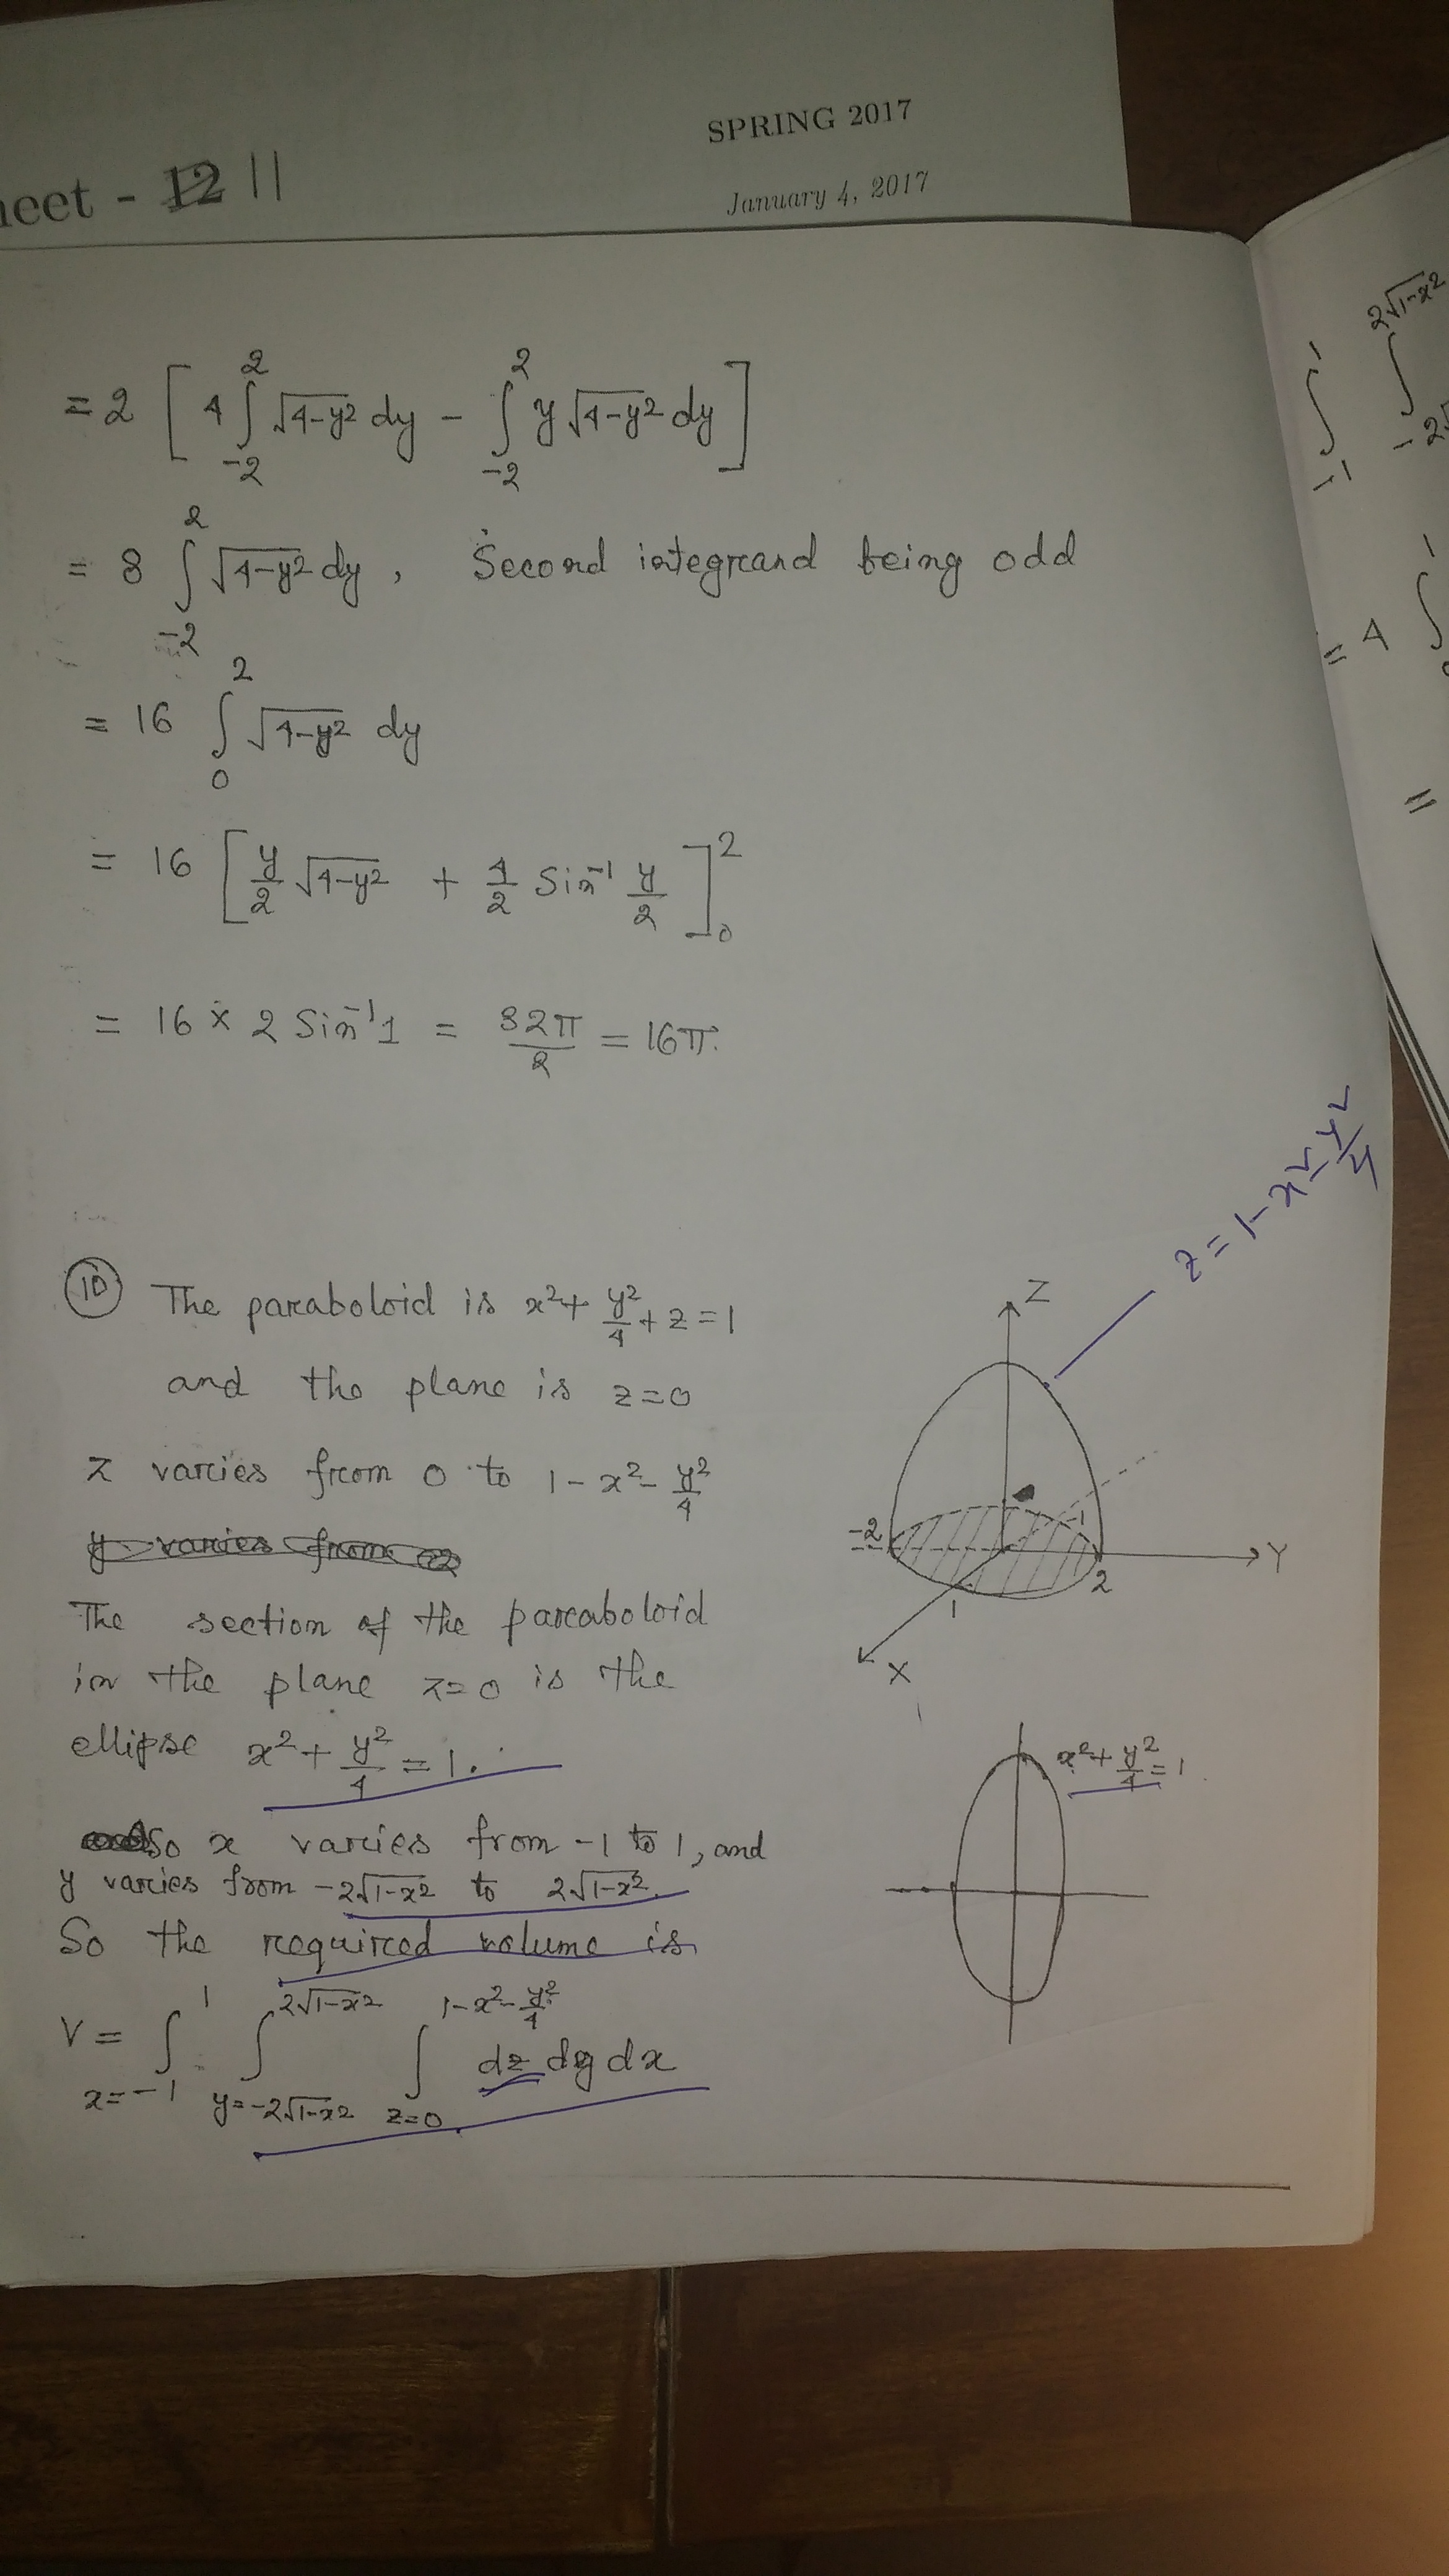 SPRING 2017
heet - 12 11
January 4, 2017
= 2 [ 4 ∫_{-2}^{2} √(4-y²) dy - ∫_{-2}^{2} y √(4-y²) dy ]
= 8 ∫_{-2}^{2} √(4-y²) dy , Second integrand being odd
= 16 ∫_{0}^{2} √(4-y²) dy
= 16 [ y/2 √(4-y²) + 4/2 Sin⁻¹ y/2 ]_{0}^{2}
= 16 × 2 Sin⁻¹1 = 32π/2 = 16π.
(10) The paraboloid is x² + y²/4 + z = 1
and the plane is z=0
z varies from 0 to 1 - x² - y²/4
y varies from
The section of the paraboloid
in the plane z=0 is the
ellipse x² + y²/4 = 1.
So x varies from -1 to 1, and
y varies from -2√(1-x²) to 2√(1-x²).
So the required volume is
V = ∫_{x=-1}^{1} ∫_{y=-2√(1-x²)}^{2√(1-x²)} ∫_{z=0}^{1-x²-y²/4} dz dy dx
z = 1 - x² - y²/4
Z
-2
-1
2
Y
1
X
x² + y²/4 = 1.
∫_{-1}^{1} ∫^{2√(1-x²)}
= 4 ∫^{1}
=